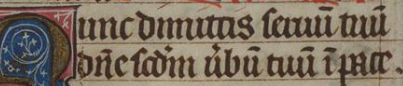 Nunc dimittis seruū tuū
dn̄e scd̄m u̇bū tuū ī pace.